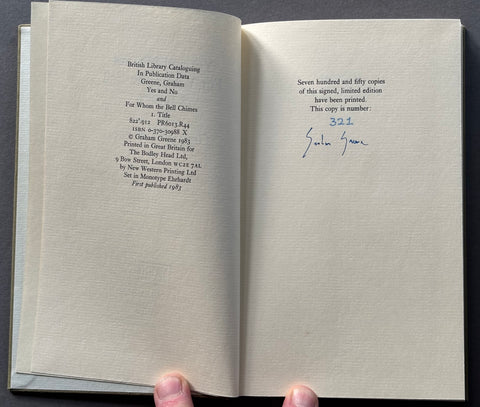 British Library Cataloguing
In Publication Data
Greene, Graham
Yes and No
and
For Whom the Bell Chimes
1. Title
822'.912 PR6013.R44
ISBN 0-370-30988 X
© Graham Greene 1983
Printed in Great Britain for
The Bodley Head Ltd,
9 Bow Street, London WC2E 7AL
by New Western Printing Ltd
Set in Monotype Ehrhardt
First published 1983
Seven hundred and fifty copies
of this signed, limited edition
have been printed.
This copy is number:
321
Graham Greene